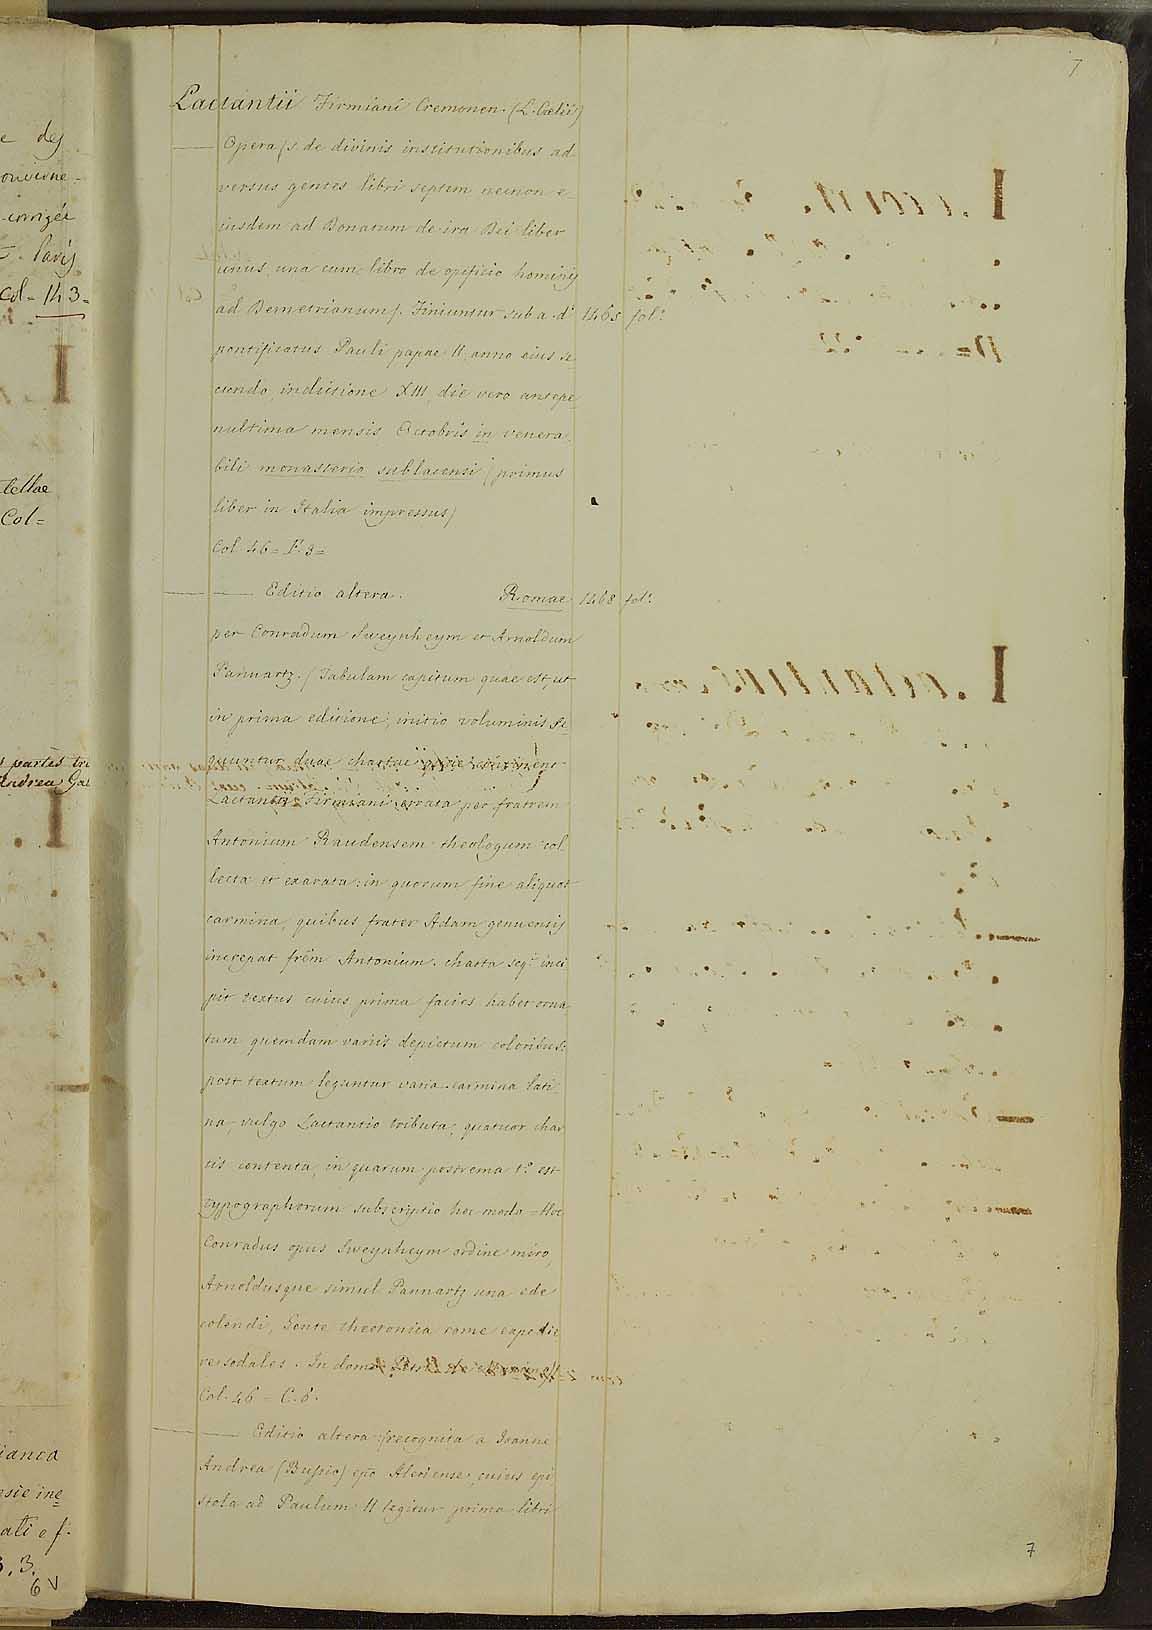 7
Lactantii Firmiani Cremonen. (L. Cælii)
Opera (s. de divinis institutionibus ad
versus gentes libri septem necnon e
iusdem ad Donatum de ira Dei liber
unus, una cum libro de opificio hominis
ad Demetrianum). Finiuntur sub a. dⁱ 1465 fol.º
pontificatus Pauli papae II, anno eius se
cundo, indictione XIII, die vero antepe
nultima mensis Octobris in venera
bili monasterio sublacensi (primus
liber in Italia impressus)
Col 46 = F. 3 =
Editio altera. Romae 1468 fol.º
per Conradum Sweynheym et Arnoldum
Pannartz. (Tabulam capitum quae est, ut
in prima editione, initio voluminis se=
quuntur duae chartae quae continent
Lactantii Firmiani errata per fratrem
Antonium Raudensem theologum col
lecta et exarata: in quorum fine aliquot
carmina, quibus frater Adam genuensis
increpat frēm Antonium. charta seq. inci
pit textus cuius prima facies habet orna
tum quemdam variis depictum coloribus:
post textum leguntur varia carmina lati
na, vulgo Lactantio tributa, quatuor char
tis contenta, in quarum postrema t.º est
typographorum subscriptio hoc modo = Hoc
Conradus opus Sweynheym ordine miro,
Arnoldusque simul Pannartz una ede
colendi, Gente theotonica rome expedie
re sodales. In domo Petri de
Col. 46 = C. 6.
Editio altera (recognita a Joanne
Andrea (Bussio) epō Aleriense, cuius epi
stola ad Paulum II legitur primo libri
7
e des
corrigée
Paris
Col = 143 =
Col =
partès
Andrea
3. 3.
6v